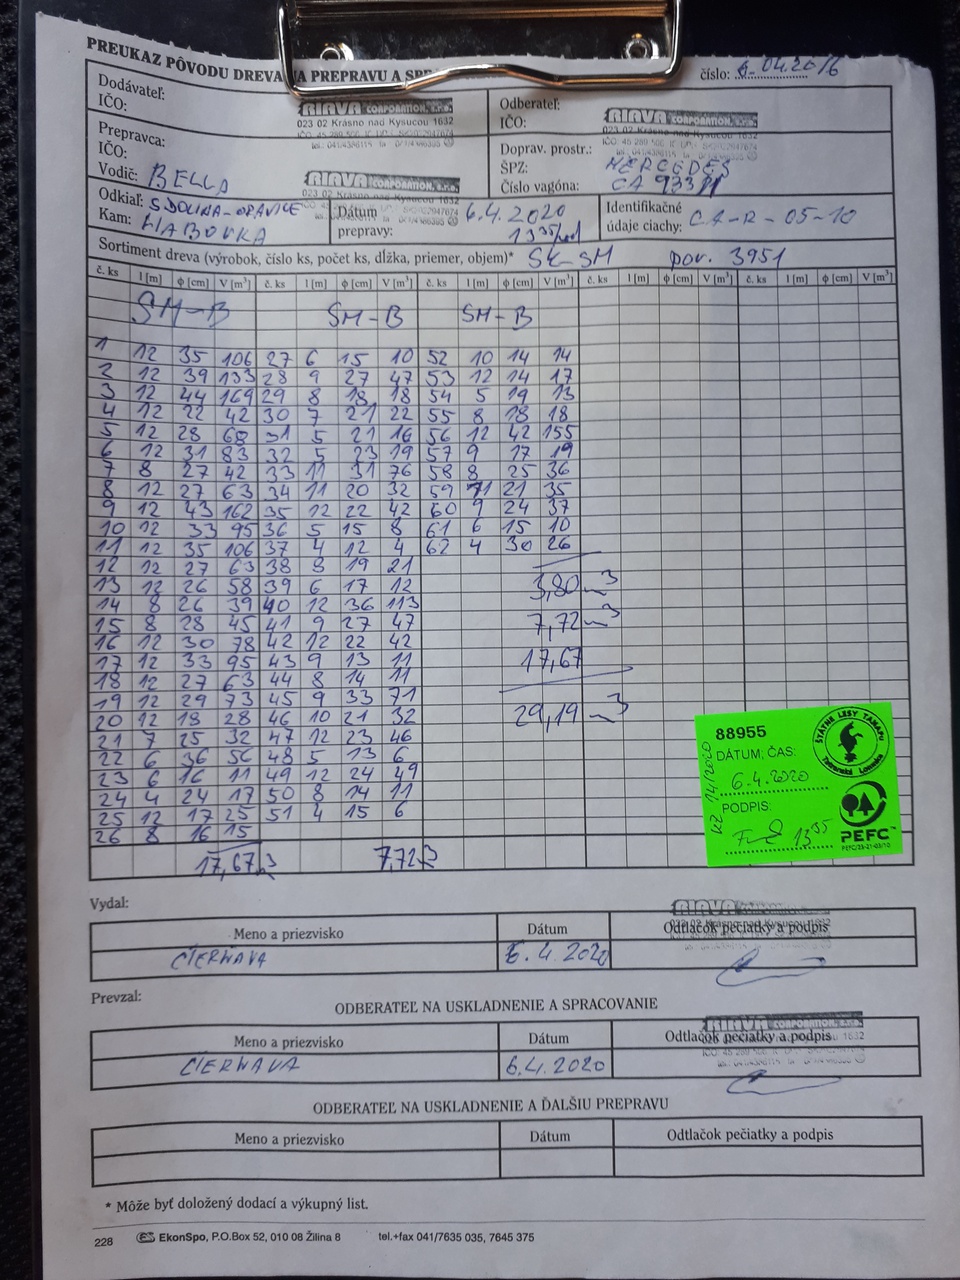 PREUKAZ PÔVODU DREVA NA PREPRAVU A
číslo: 6-04.20/6
Dodávateľ:
IČO:
RIAVA CORPORATION, s.r.o.
023 02 Krásno nad Kysucou 1632
Odberateľ:
IČO:
RIAVA CORPORATION, s.r.o.
023 02 Krásno nad Kysucou 1632
Prepravca:
IČO:
Vodič: BELLA
RIAVA CORPORATION, s.r.o.
Doprav. prostr.: MERCEDES
ŠPZ:
Číslo vagóna: CA 933
Odkiaľ: S DOLINA-ORAVICE
Kam: HABOVKA
Dátum prepravy: 6.4.2020
13 35
Identifikačné údaje ciachy: CA-R-05-10
Sortiment dreva (výrobok, číslo ks, počet ks, dĺžka, priemer, objem)* SK SM pov. 3951
č. ks l [m] ϕ [cm] V [m³] č. ks l [m] ϕ [cm] V [m³] č. ks l [m] ϕ [cm] V [m³] č. ks l [m] ϕ [cm] V [m³] č. ks l [m] ϕ [cm] V [m³]
SM-B SM-B SM-B
1 12 35 106 27 6 15 10 52 10 14 14
2 12 39 133 28 9 27 47 53 12 14 17
3 12 44 169 29 8 18 18 54 5 19 13
4 12 22 42 30 7 21 22 55 8 18 18
5 12 28 68 31 5 21 16 56 12 42 155
6 12 31 83 32 5 23 19 57 9 17 19
7 8 27 42 33 11 31 76 58 8 25 36
8 12 27 63 34 11 20 32 59 11 21 35
9 12 43 162 35 12 22 42 60 9 24 37
10 12 33 95 36 5 15 8 61 6 15 10
11 12 35 106 37 4 12 4 62 4 30 26
12 12 27 63 38 8 19 21
13 12 26 58 39 6 17 12 3,80 m³
14 8 26 39 40 12 36 113
15 8 28 45 41 9 27 47 7,72 m³
16 12 30 78 42 12 22 42
17 12 33 95 43 9 13 11 17,67
18 12 27 63 44 8 14 11
19 12 29 73 45 9 33 71
20 12 18 28 46 10 21 32 29,19 m³
21 7 25 32 47 12 23 46
22 6 36 56 48 5 13 6
23 6 16 11 49 12 24 49
24 4 24 17 50 8 14 11
25 12 17 25 51 4 15 6
26 8 16 15
17,67 m³ 7,72 m³
88955
DÁTUM, ČAS:
6.4.2020
PODPIS:
13 35
KZ 14/2020
ŠTÁTNE LESY TANAPU
Tatranská Lomnica
PEFC™
PEFC/23-21-03/10
Vydal:
Meno a priezvisko Dátum Odtlačok pečiatky a podpis
ČIERŇAVA 6.4.2020
RIAVA CORPORATION, s.r.o.
023 02 Krásno nad Kysucou 1632
Prevzal:
ODBERATEĽ NA USKLADNENIE A SPRACOVANIE
Meno a priezvisko Dátum Odtlačok pečiatky a podpis
ČIERŇAVA 6.4.2020
RIAVA CORPORATION, s.r.o.
ODBERATEĽ NA USKLADNENIE A ĎALŠIU PREPRAVU
Meno a priezvisko Dátum Odtlačok pečiatky a podpis
* Môže byť doložený dodací a výkupný list.
228 ES EkonSpo, P.O.Box 52, 010 08 Žilina 8 tel.+fax 041/7635 035, 7645 375